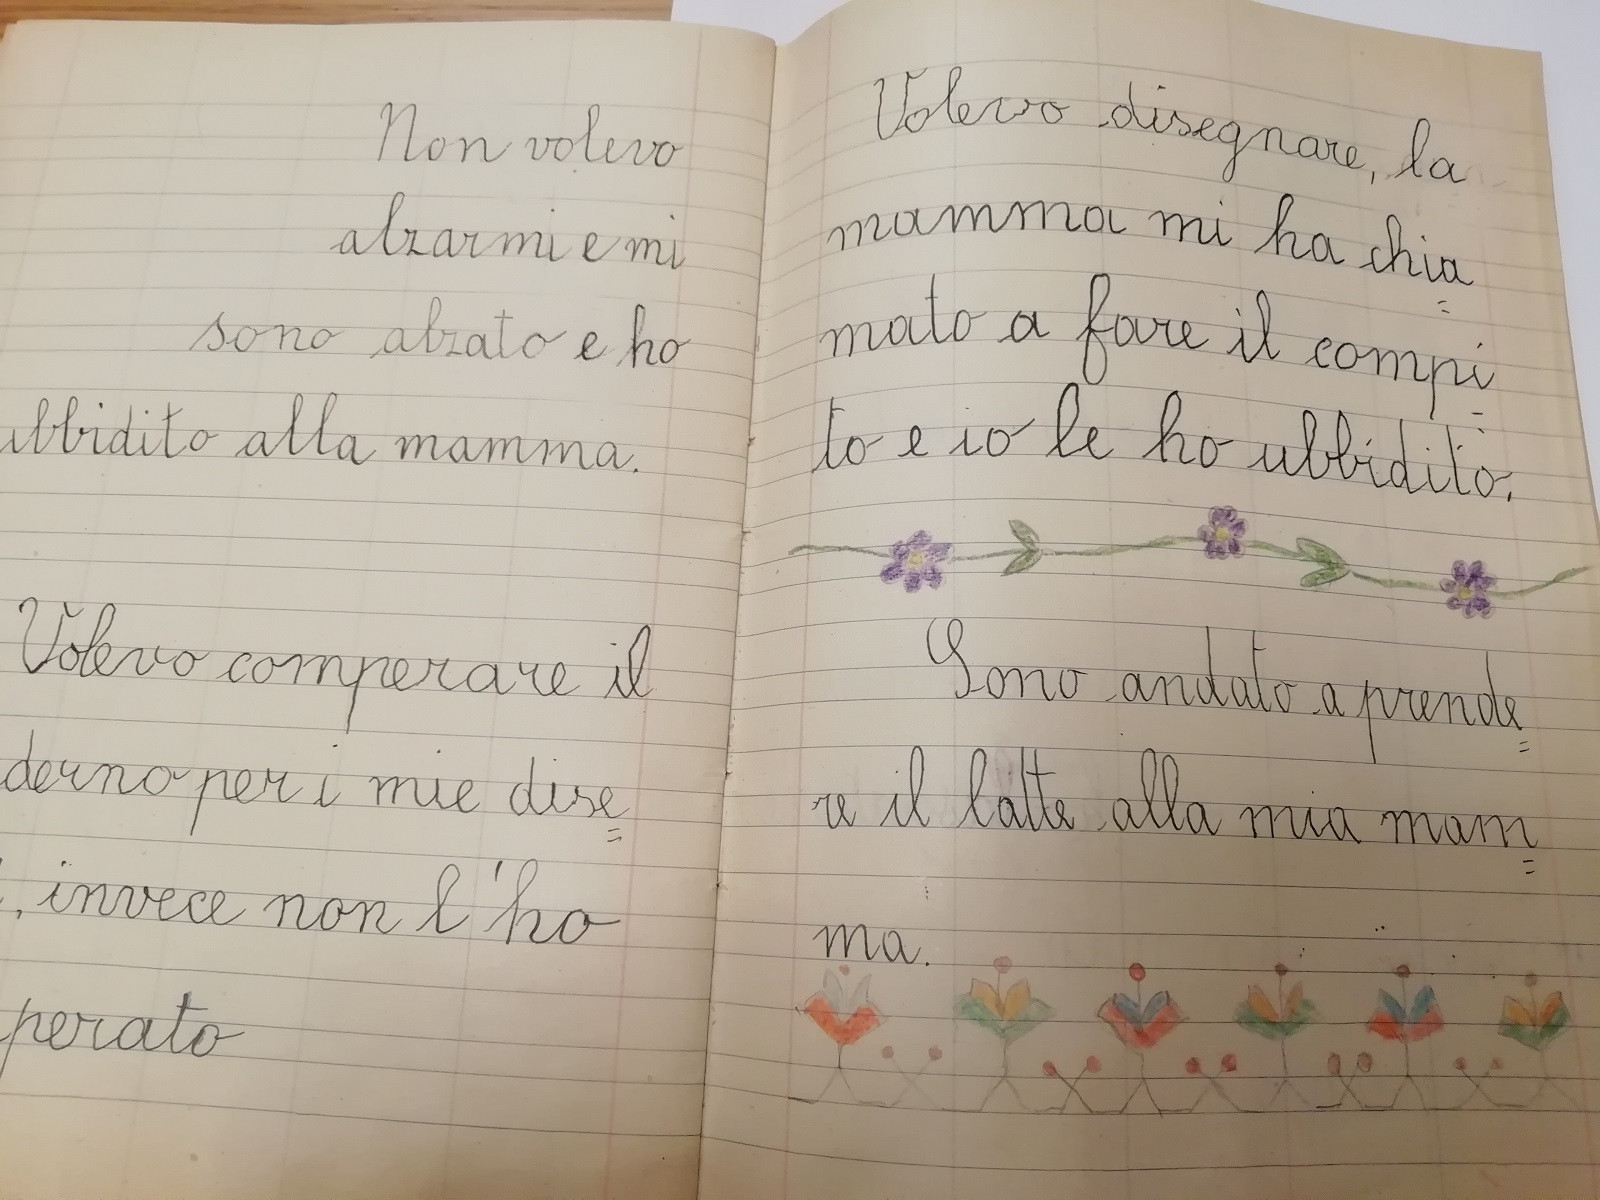 Non volevo
alzarmi e mi
sono alzato e ho
ubbidito alla mamma.
Volevo comperare il
derno per i mie dise=
, invece non l'ho
perato
Volevo disegnare, la
mamma mi ha chia=
mato a fare il compi=
to e io le ho ubbidito.
Sono andato a prende=
re il latte alla mia mam=
ma.